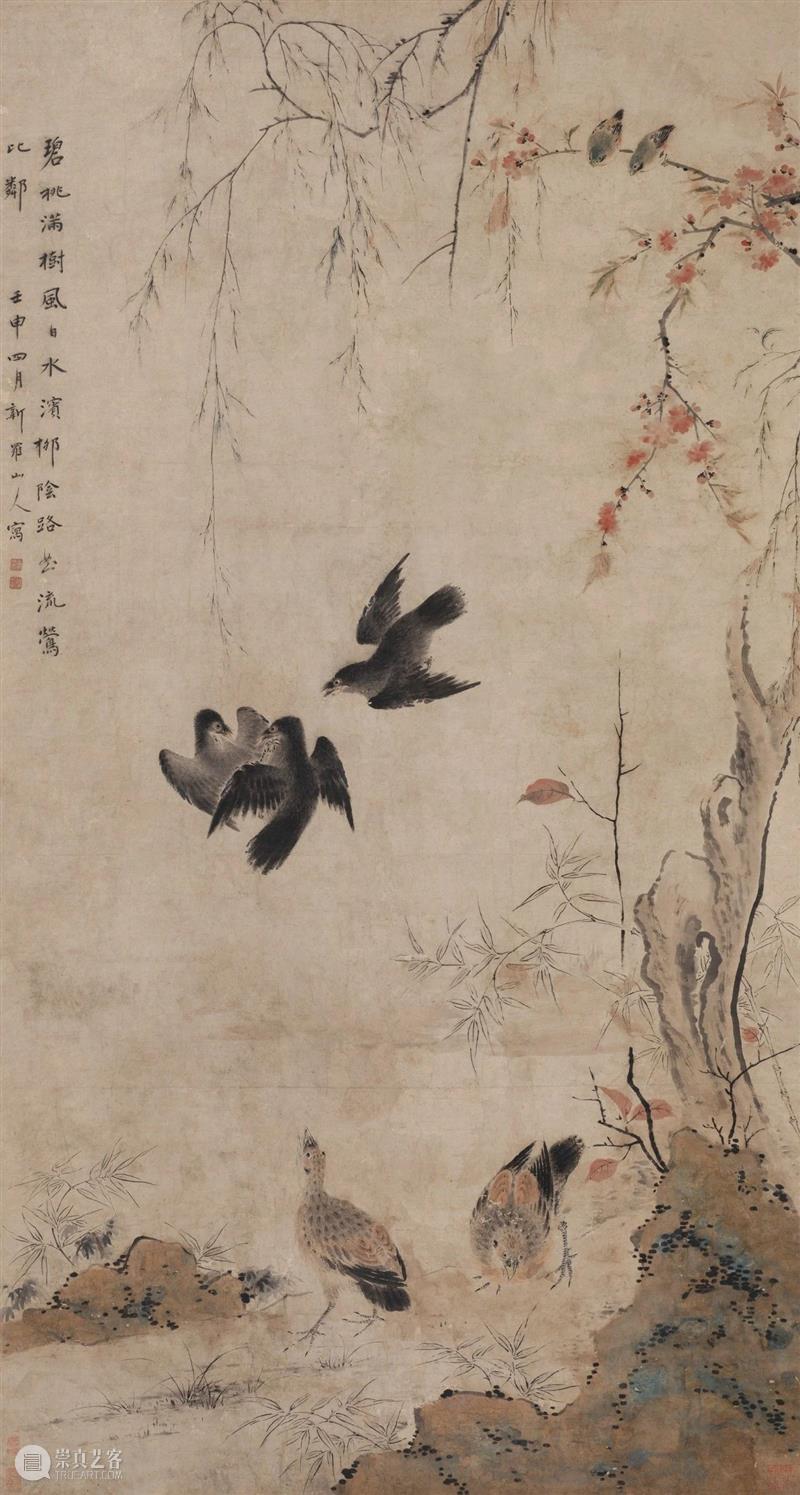 碧桃滿樹風日水濱柳陰路曲流鶯
比鄰 壬申四月新羅山人寫
崇真艺客
WWW.TRUEART.COM